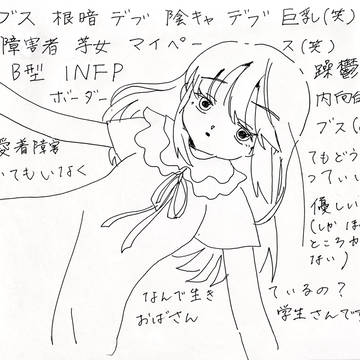 ブス 根暗 デブ 陰キャ デブ 巨乳(笑)
障害者 芋女 マイペース(笑)
B型 INFP 躁鬱
ボーダー 内向的
ブス
愛着障害 てもどう
いてもいなく ってい
優しい
(しか
ところが
ない)
なんで生き ているの?
おばさん 学生さんです